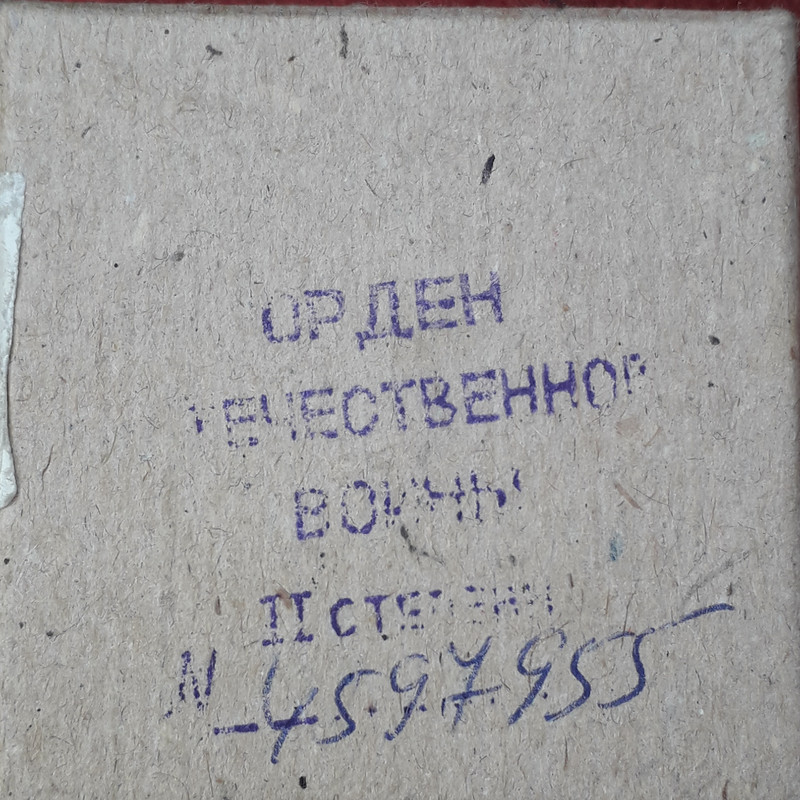 ОРДЕН
ОТЕЧЕСТВЕННОЙ
ВОЙНЫ
II СТЕПЕНИ
N 4597955